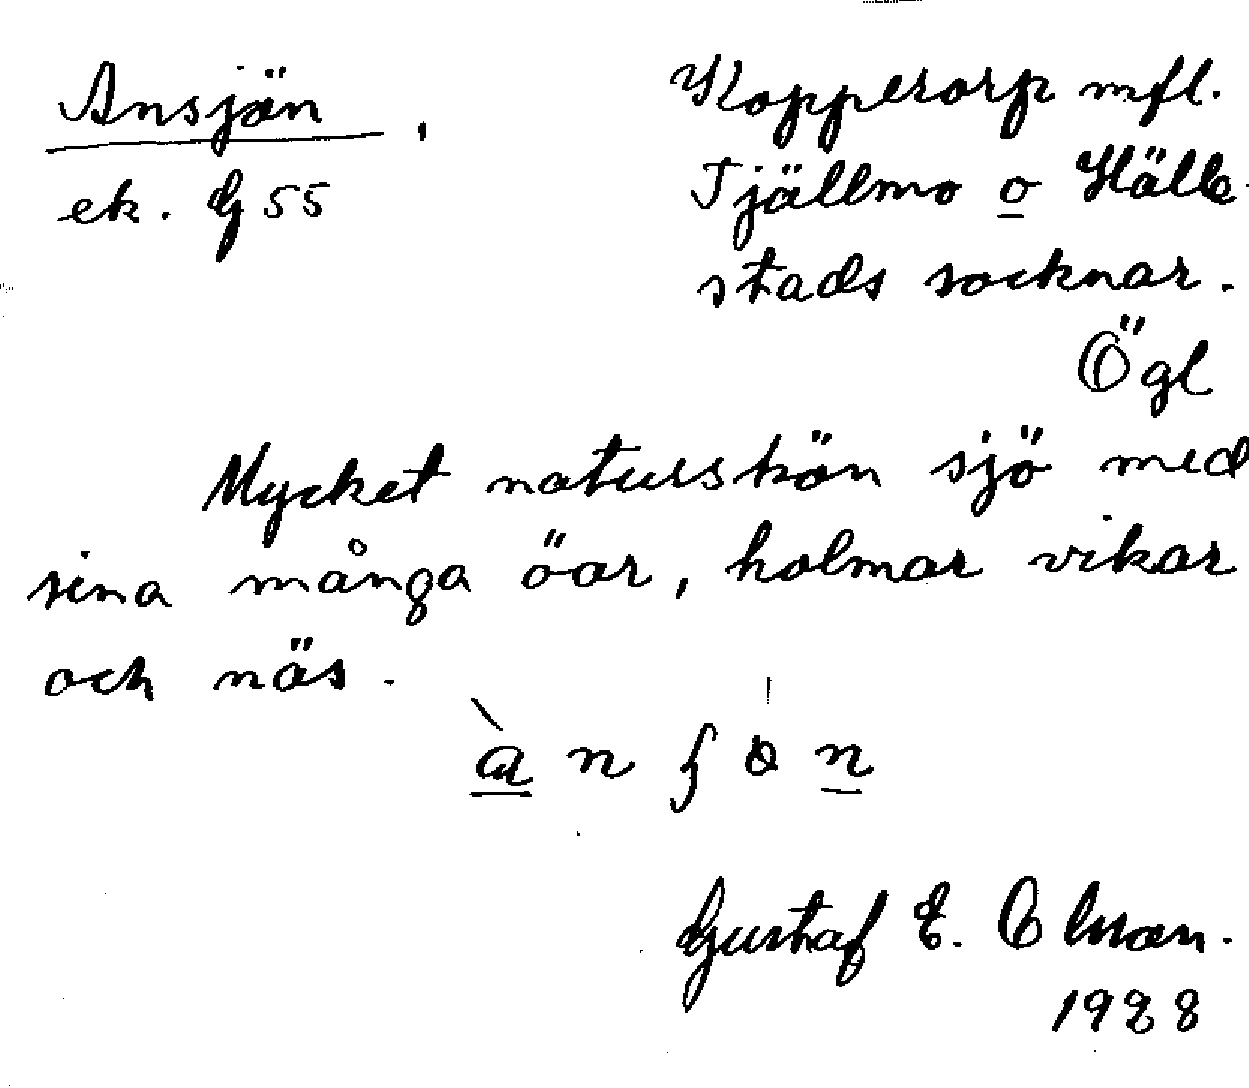 Ansjön
Kopperorp mfl.
ek. G 55
Tjällmo o Hälle-
stads socknar.
Ögl
Mycket naturskön sjö med
sina många öar, holmar vikar
och näs.
Gustaf E. Olsson.
1928